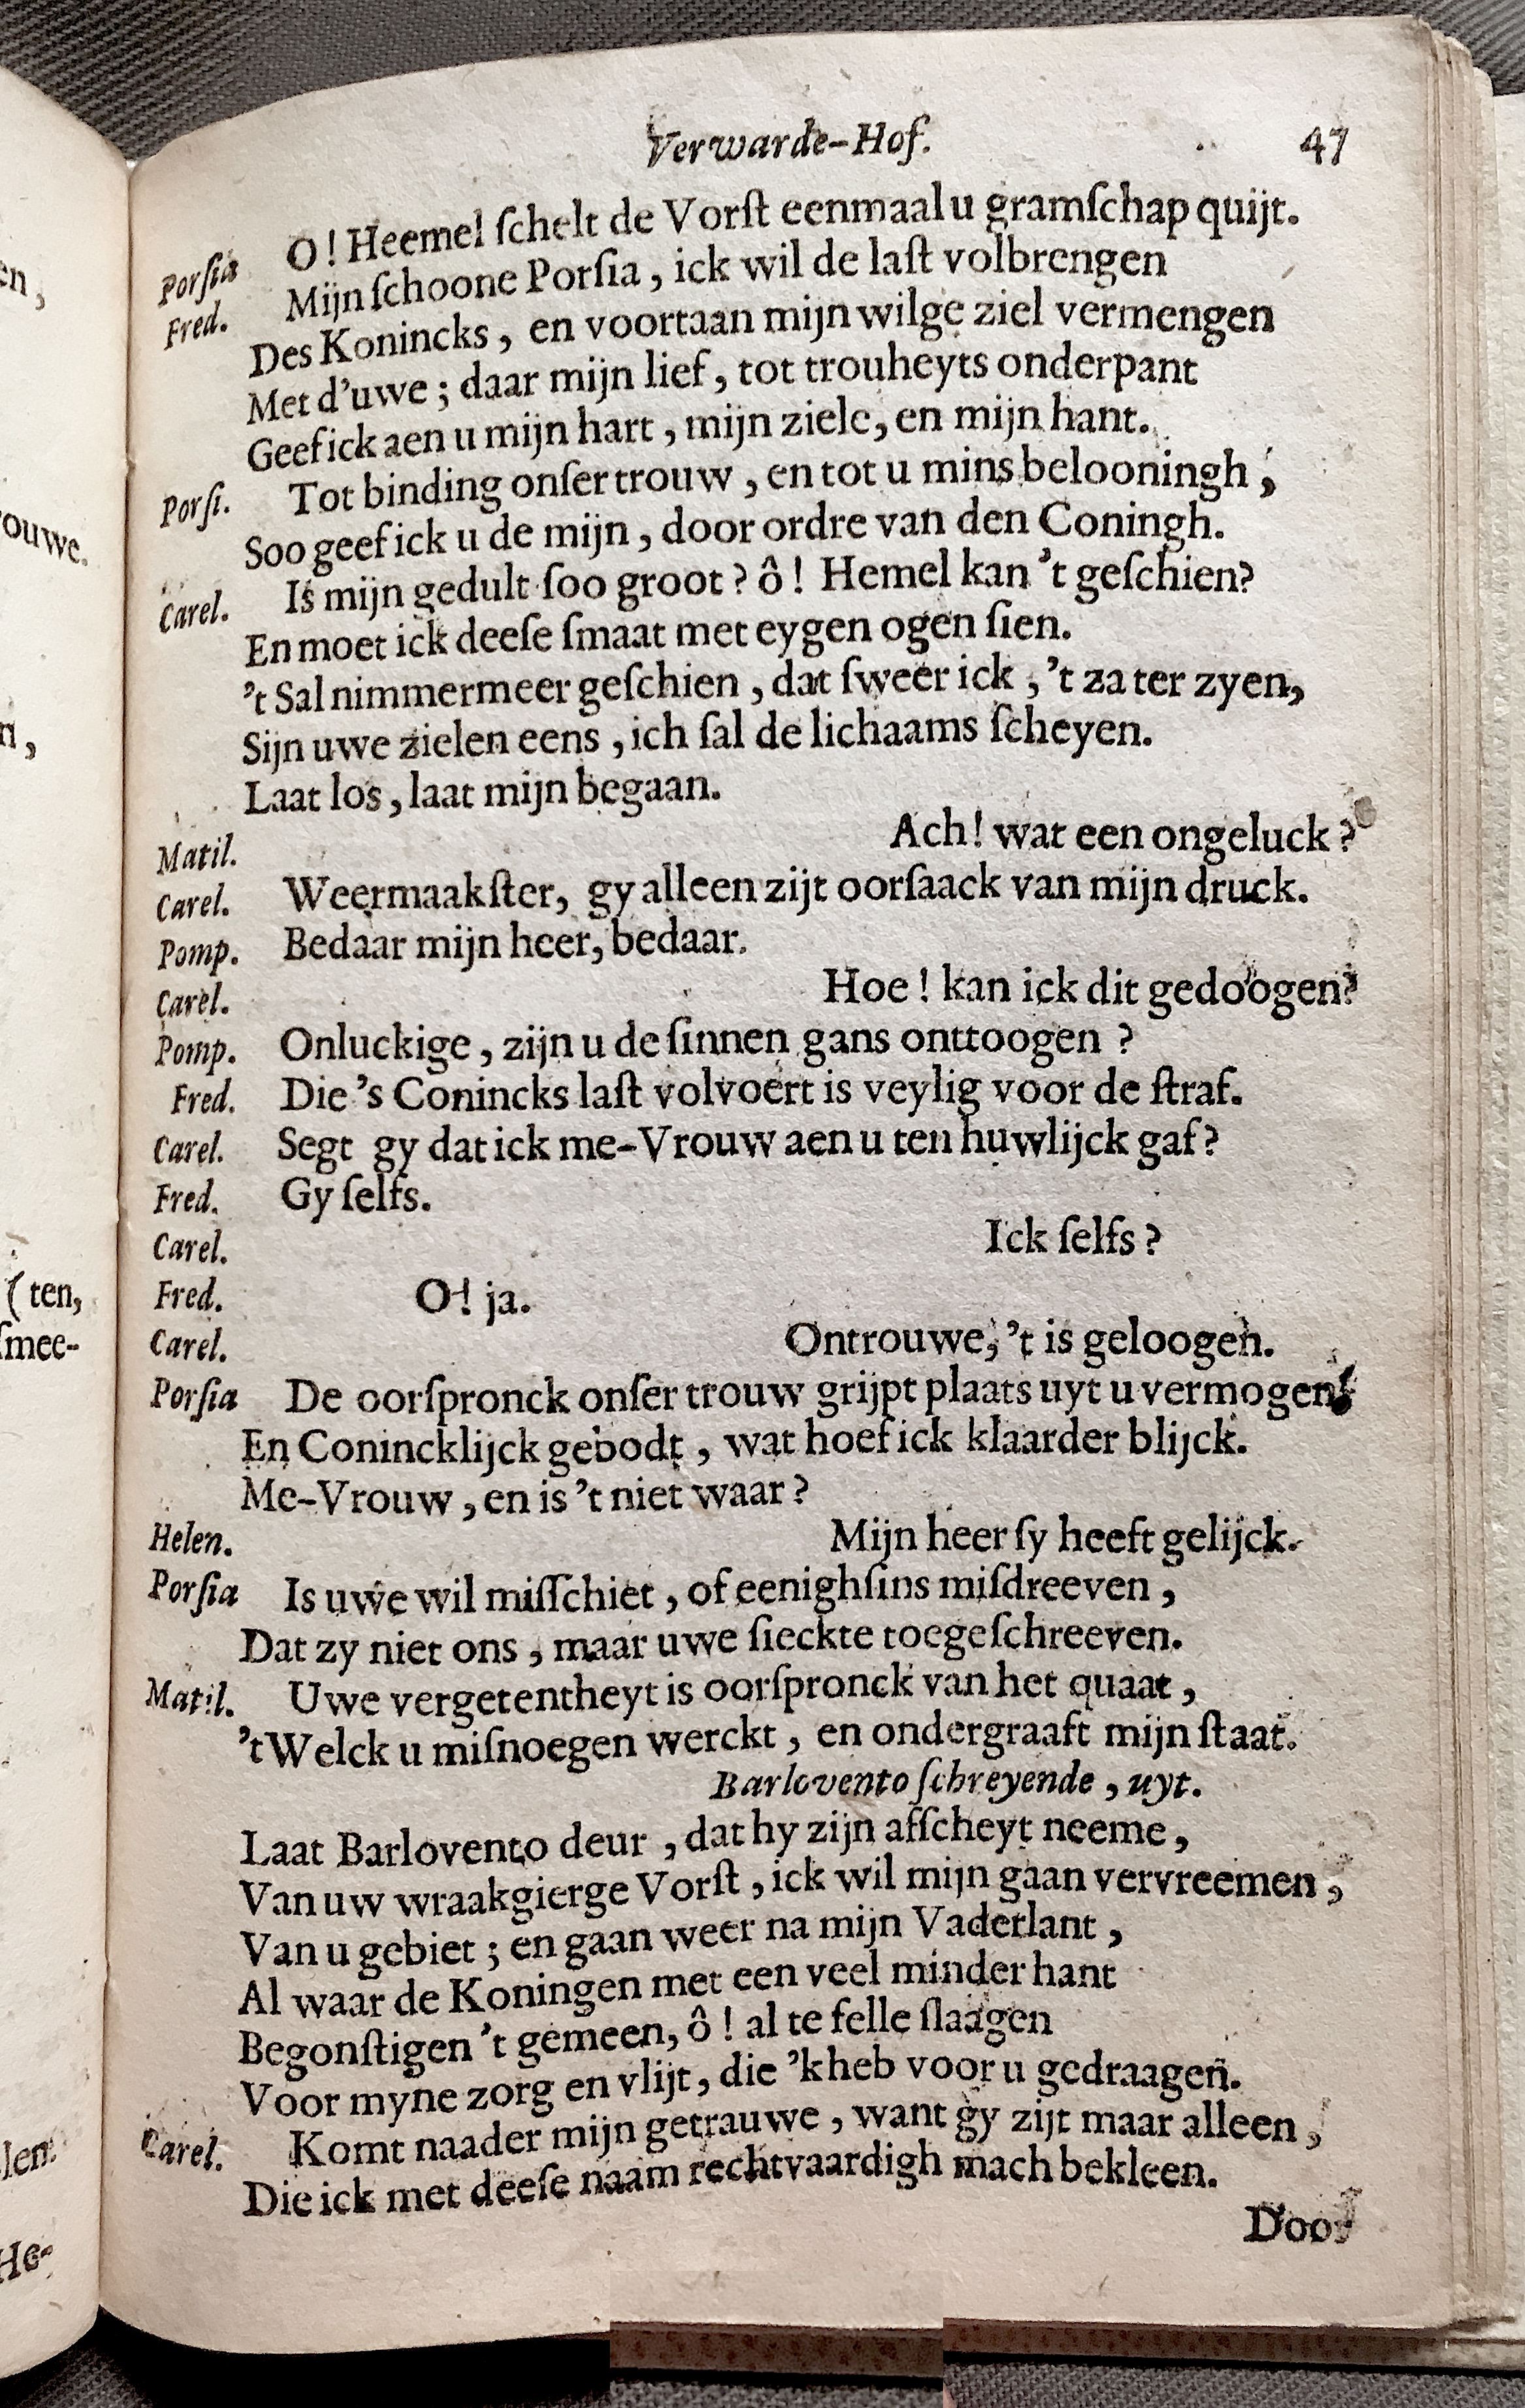 Verwarde-Hof. 47
Porsia O! Heemel ſchelt de Vorſt eenmaal u gramſchap quijt.
Fred. Mijn ſchoone Porſia, ick wil de laſt volbrengen
Des Konincks, en voortaan mijn wilge ziel vermengen
Met d'uwe; daar mijn lief, tot trouheyts onderpant
Geef ick aen u mijn hart, mijn ziele, en mijn hant.
Porſi. Tot binding onſer trouw, en tot u mins belooningh,
Soo geef ick u de mijn, door ordre van den Coningh.
Carel. Is mijn gedult ſoo groot? ô! Hemel kan 't geſchien?
En moet ick deeſe ſmaat met eygen ogen ſien.
't Sal nimmermeer geſchien, dat ſweer ick, 't za ter zyen,
Sijn uwe zielen eens, ich ſal de lichaams ſcheyen.
Laat los, laat mijn begaan.
Matil. Ach! wat een ongeluck?
Carel. Weermaakſter, gy alleen zijt oorſaack van mijn druck.
Pomp. Bedaar mijn heer, bedaar.
Carel. Hoe! kan ick dit gedoogen?
Pomp. Onluckige, zijn u de ſinnen gans onttoogen?
Fred. Die 's Conincks laſt volvoert is veylig voor de ſtraf.
Carel. Segt gy dat ick me-Vrouw aen u ten huwlijck gaf?
Fred. Gy ſelfs.
Carel. Ick ſelfs?
Fred. O! ja.
Carel. Ontrouwe, 't is geloogen.
Porſia De oorſpronck onſer trouw grijpt plaats uyt u vermogen
En Conincklijck gebodt, wat hoef ick klaarder blijck.
Me-Vrouw, en is 't niet waar?
Helen. Mijn heer ſy heeft gelijck.
Porſia Is uwe wil miſſchiet, of eenighſins miſdreeven,
Dat zy niet ons, maar uwe ſieckte toegeſchreeven.
Matil. Uwe vergetentheyt is oorſpronck van het quaat,
't Welck u miſnoegen werckt, en ondergraaft mijn ſtaat.
Barlovento ſchreyende, uyt.
Laat Barlovento deur, dat hy zijn afſcheyt neeme,
Van uw wraakgierge Vorſt, ick wil mijn gaan vervreemen,
Van u gebiet; en gaan weer na mijn Vaderlant,
Al waar de Koningen met een veel minder hant
Begonſtigen 't gemeen, ô! al te felle ſlaagen
Voor myne zorg en vlijt, die 'k heb voor u gedraagen.
Carel. Komt naader mijn getrauwe, want gy zijt maar alleen,
Die ick met deeſe naam rechtvaardigh mach bekleen.
Door
en,
rouwe.
n,
(ten,
ſmee-
len.
He-